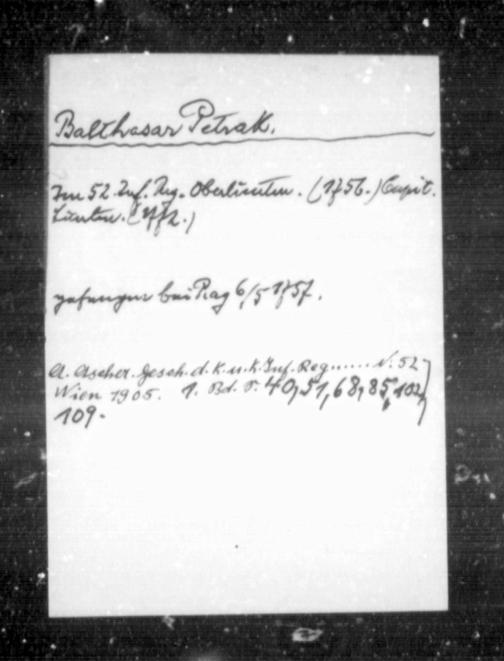 Balthasar Petrak.
Im 52. Inf. Reg. Oberlieutn. (1756.) Capit.
Lieutn. (1772.)
gefangen bei Prag 6/5 1757.
A. Ascher. Gesch. d. k. u. k. Inf. Reg...... N. 52
Wien 1905. 1. Bd. S. 40, 51, 68, 85, 102,
109.